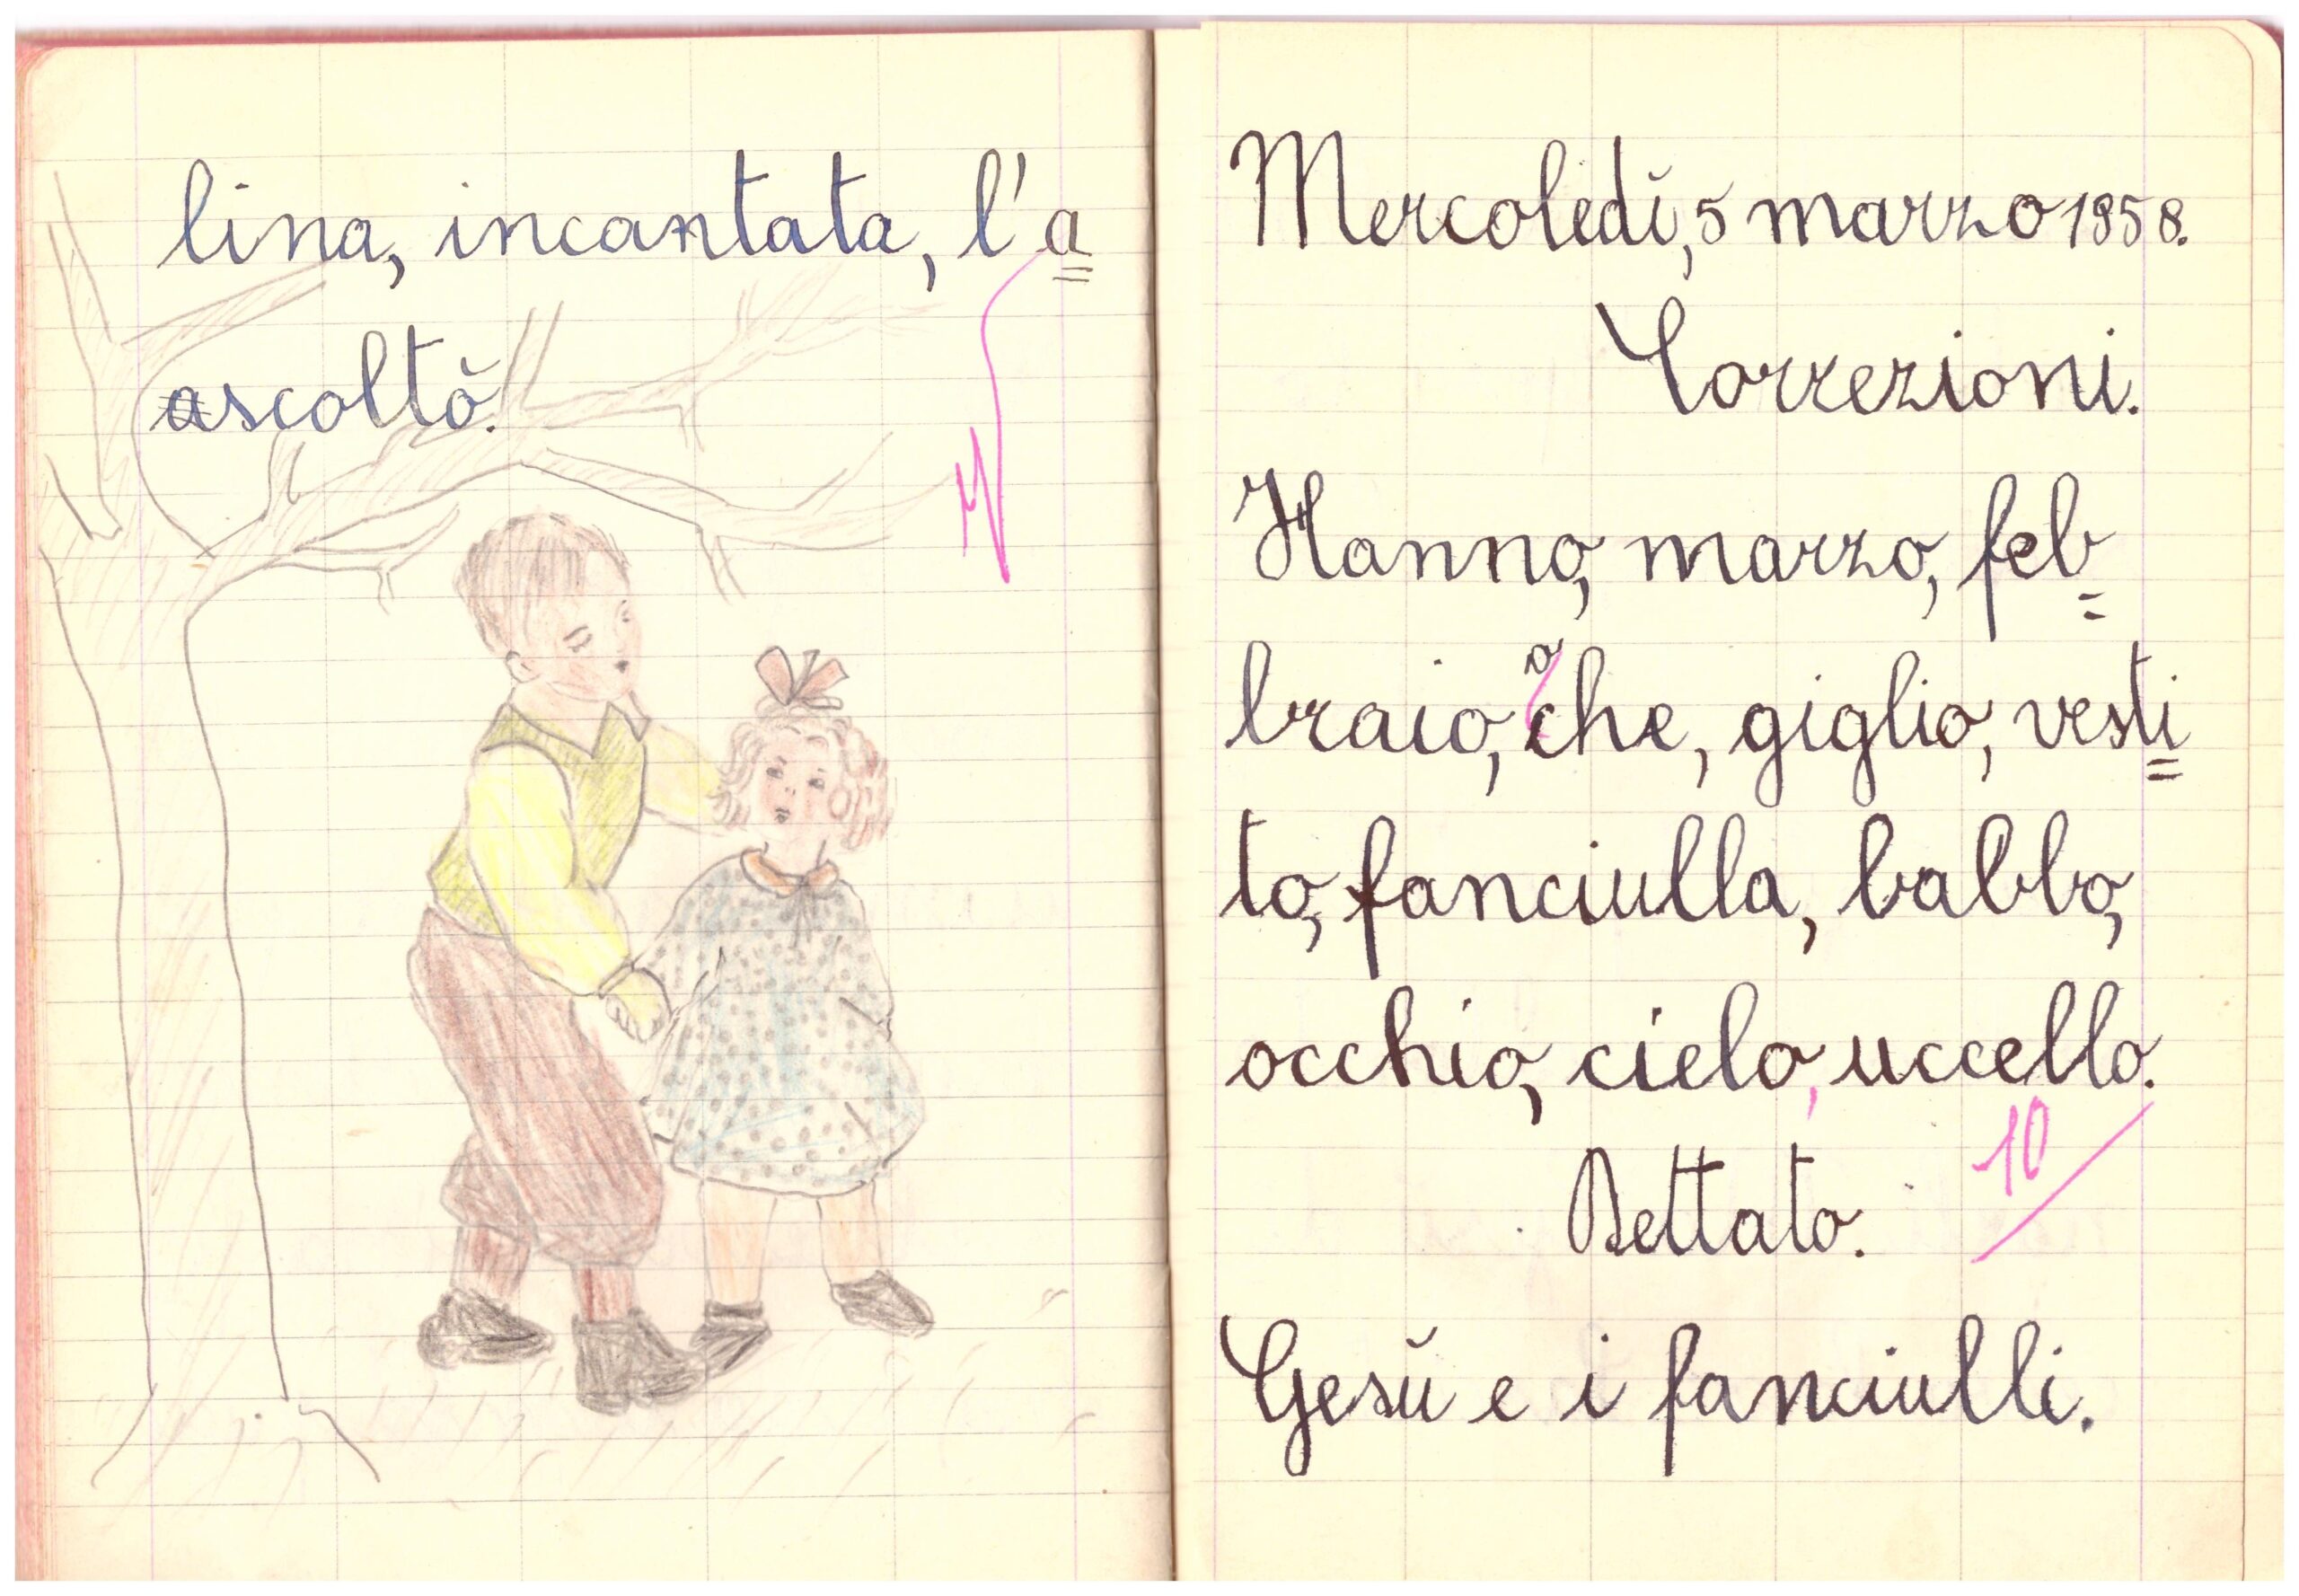 lina, incantata, l'a
ascoltò.
Mercoledì, 5 marzo 1958.
Correzioni.
Hanno, marzo, feb
braio, o che, giglio, vesti
to, fanciulla, babbo,
occhio, cielo, uccello.
10
Dettato.
Gesù e i fanciulli.